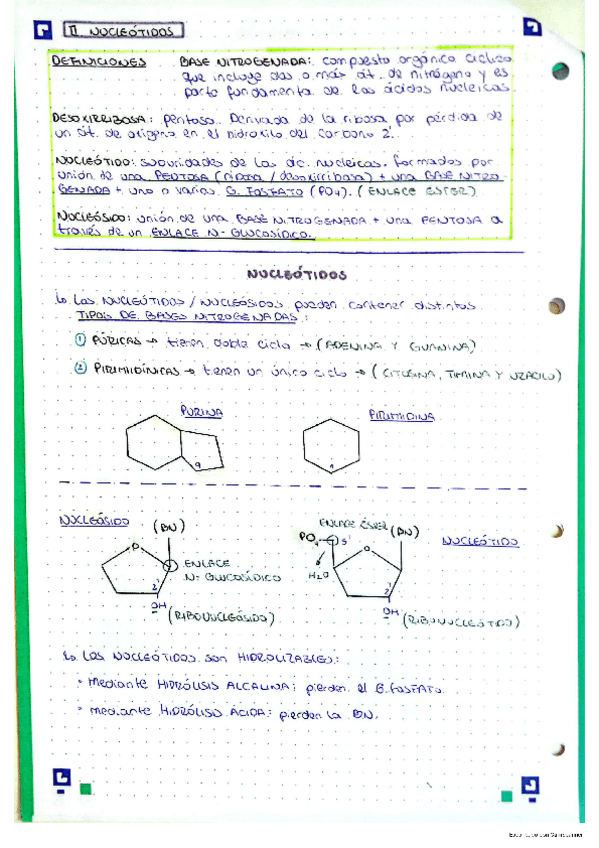 II NUCLEÓTIDOS
DEFINICIONES BASE NITROGENADA: compuesto orgánico cíclico
que incluye dos o más át. de nitrógeno y es
parte fundamental de los ácidos nucleicos.
DESOXIRRIBOSA: pentosa. Derivada de la ribosa por pérdida de
un át. de oxígeno en el hidroxilo del carbono 2'.
NUCLEÓTIDO: subunidades de los ác. nucleicos, formados por
unión de una PENTOSA (ribosa / desoxirribosa) + una BASE NITRO
GENADA + uno o varios G. FOSFATO (PO4). (ENLACE ÉSTER)
NUCLEÓSIDO: unión de una BASE NITROGENADA + una PENTOSA a
través de un ENLACE N-GLUCOSÍDICO.
NUCLEÓTIDOS
Los NUCLEÓTIDOS / NUCLEÓSIDOS pueden contener distintos
TIPOS DE BASES NITROGENADAS:
1 PÚRICAS → tienen doble ciclo → (ADENINA Y GUANINA)
2 PIRIMIDÍNICAS → tienen un único ciclo → (CITOSINA, TIMINA Y URACILO)
PURINA PIRIMIDINA
9 1
NUCLEÓSIDO (BN) ENLACE ÉSTER (BN)
PO4 5' O NUCLEÓTIDO
O ENLACE
N-GLUCOSÍDICO H2O
2' 2'
OH (RIBONUCLEÓSIDO) OH (RIBONUCLEÓTIDO)
Los NUCLEÓTIDOS son HIDROLIZABLES:
· mediante HIDRÓLISIS ALCALINA: pierden el G. FOSFATO.
· mediante HIDRÓLISIS ÁCIDA: pierden la BN.